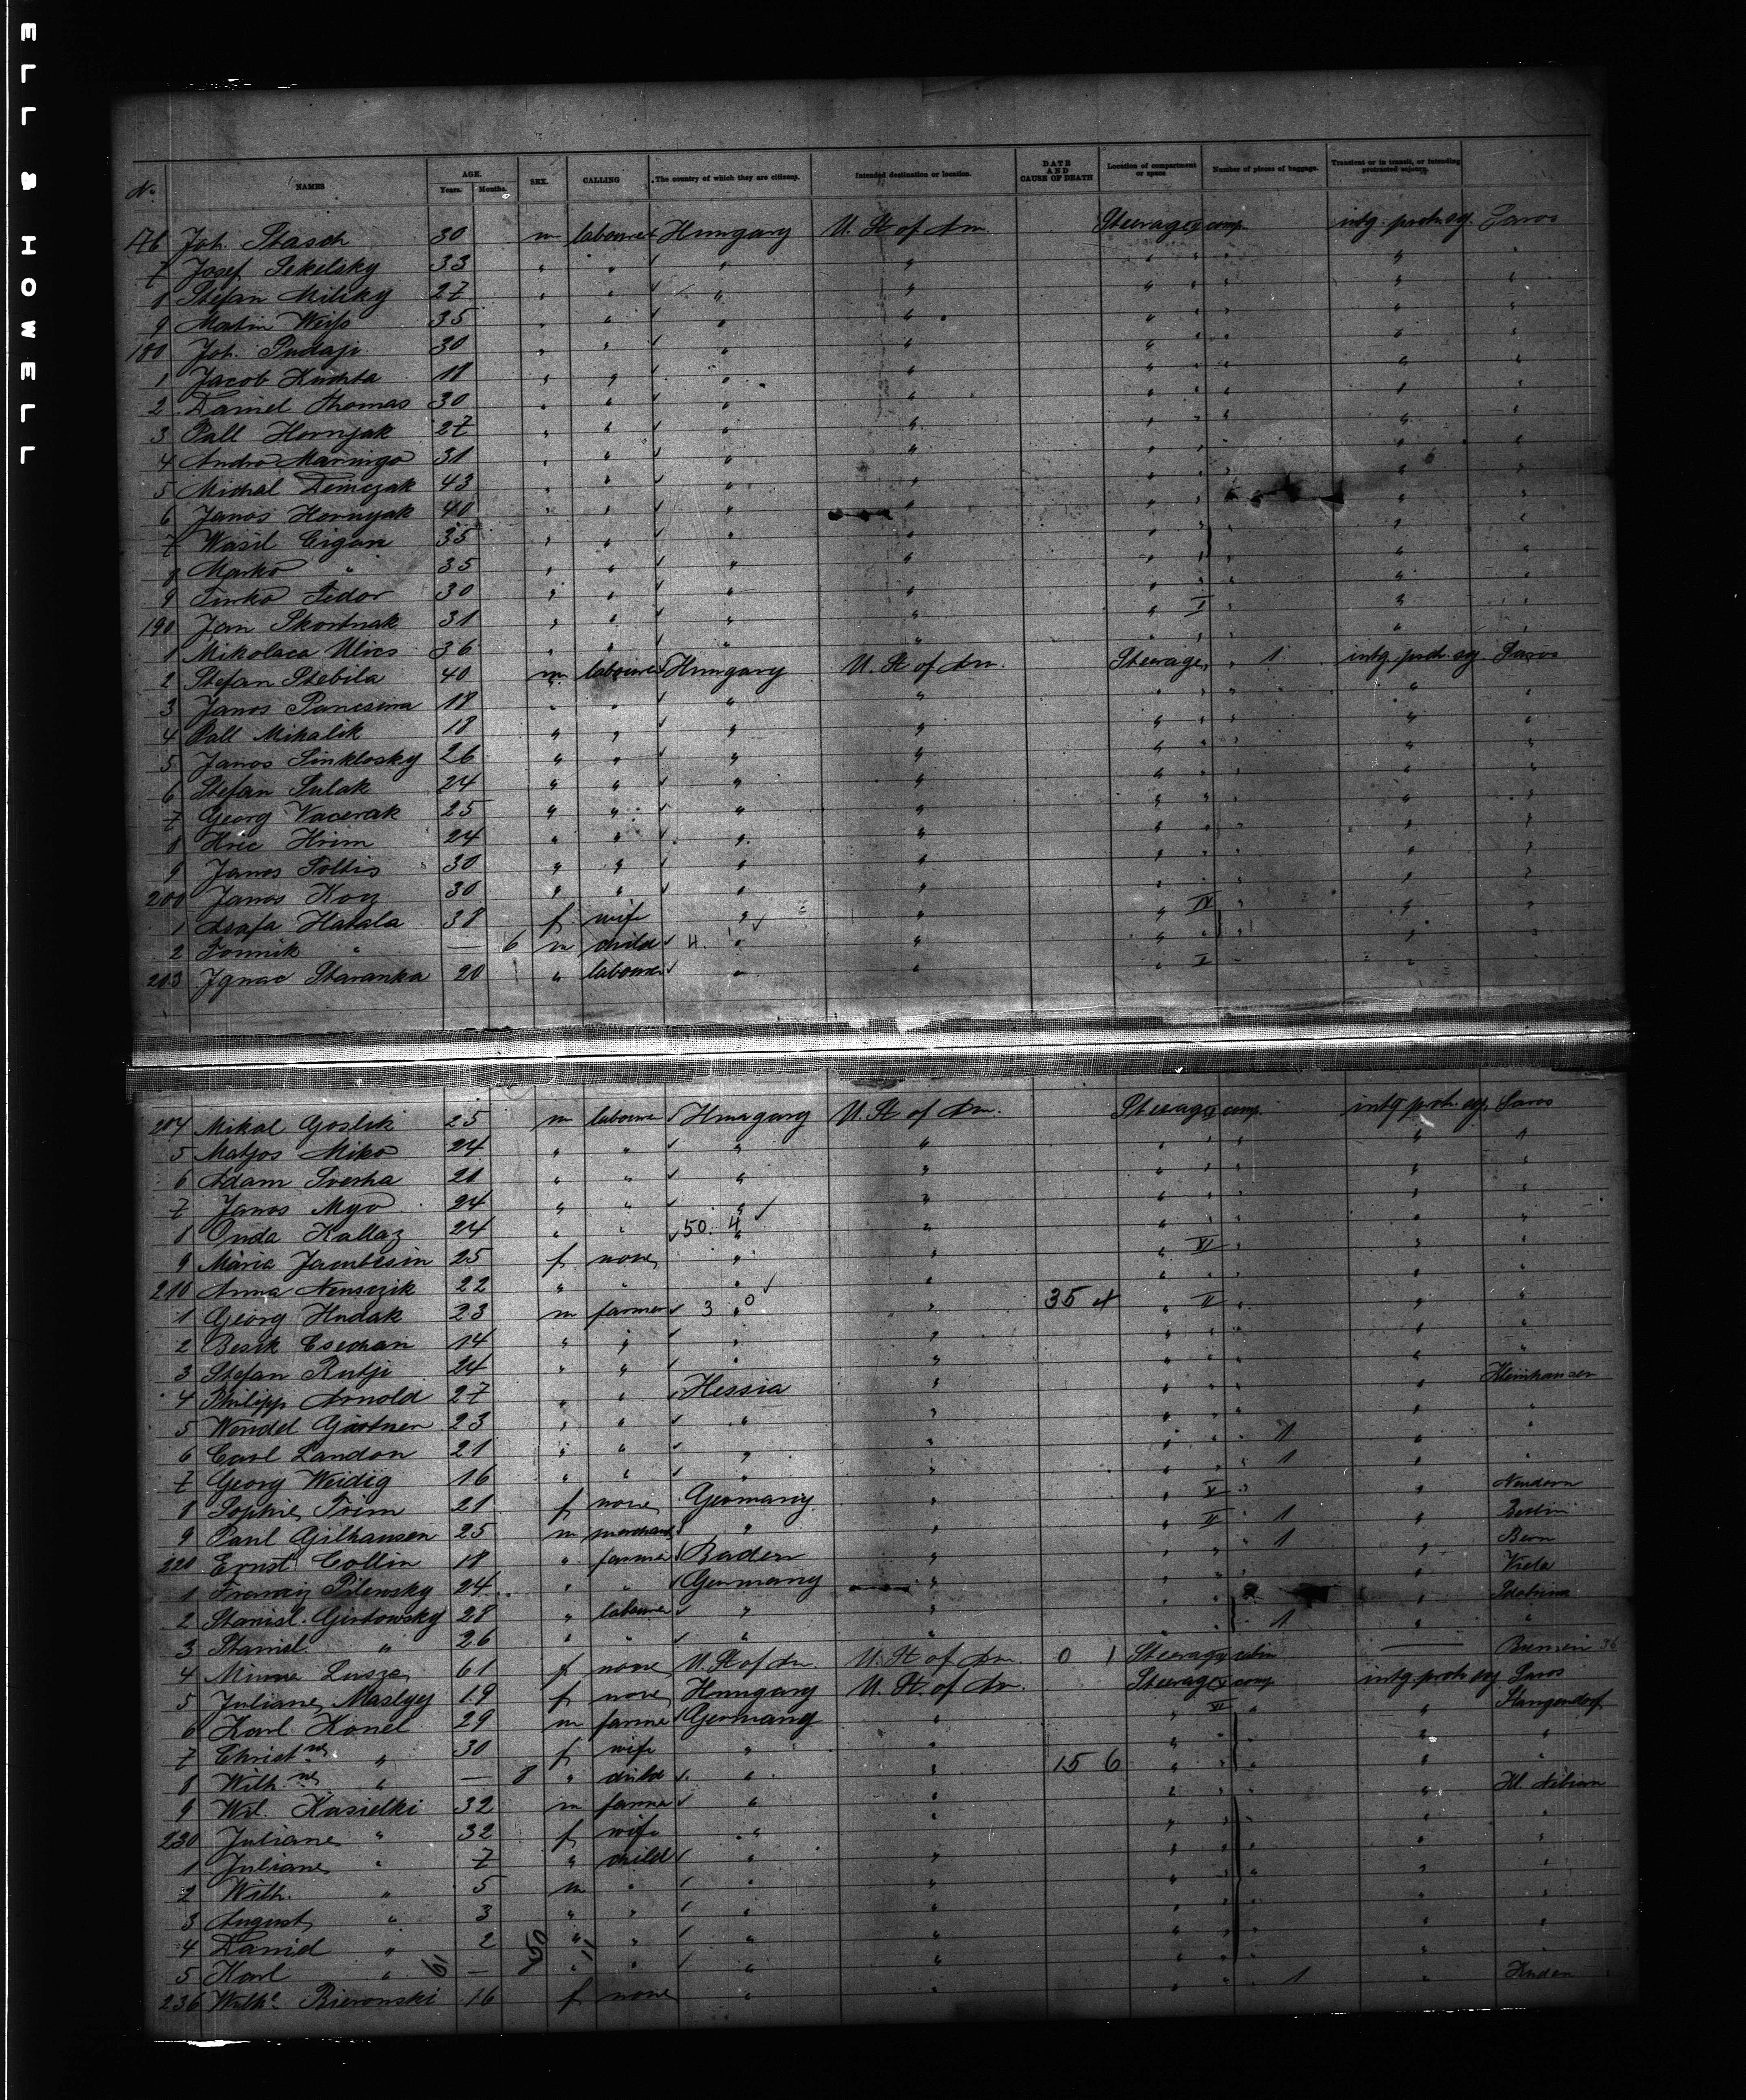 ELL & HOWELL
No. NAMES AGE. Years. Months. SEX. CALLING The country of which they are citizens. Intended destination or location. DATE AND CAUSE OF DEATH Location of compartment or space Number of pieces of baggage. Transient or in transit, or intending protracted sojourn.
176 Joh. Stasch 30 m labourer Hungary U. St. of Am. Steerage comp. intg. protr. sj. Saros
7 Josef Sekelsky 33 " " " " " " "
8 Stefan Militky 27 " " " " " " "
9 Martin Weiss 35 " " " " " " "
180 Joh. Pudaji 30 " " " " " " "
1 Jacob Kuchta 18 " " " " " " "
2 Daniel Thomas 30 " " " " " " "
3 Pall Hornjak 27 " " " " " " "
4 Andro Maringo 31 " " " " " " "
5 Michal Demczak 43 " " " " " " "
6 Janos Hornyak 40 " " " " " " "
7 Wasil Cigan 35 " " " " " " "
8 Marko " 35 " " " " " " "
9 Turko Fedor 30 " " " " " " "
190 Jan Skortnak 31 " " " " " I " "
1 Mikolaca Ulics 36 " " " " " " "
2 Stefan Stebila 40 m labourer Hungary U. St. of Am. Steerage " 1 intg. protr. sj. Saros
3 Janos Pancsima 18 " " " " " " "
4 Pall Mihalik 18 " " " " " " "
5 Janos Sinklosky 26 " " " " " " "
6 Stefan Sulak 24 " " " " " " "
7 Georg Vacerak 25 " " " " " " "
8 Hric Hrim 24 " " " " " " "
9 Janos Soltis 30 " " " " " " "
200 Janos Korz 30 " " " " " " "
1 Asafa Hatala 38 f wife " " " IV " "
2 Tomnik " — 6 m child H. " " " " "
203 Ignac Staranka 20 " labourer " " " I " "
204 Mikal Goslik 25 m labourer Hungary U. St. of Am. Steerage comp. intg. protr. sj. Saros
5 Matjos Miko 24 " " " " " " "
6 Adam Sverha 21 " " " " " " "
7 Janos Myo 24 " " " " " " "
8 Onda Kallaz 24 " " 50. 4 " " " "
9 Maria Jacubcsin 25 f none " " " VI " "
210 Anna Nemsezik 22 " " " " " " "
1 Georg Hudak 23 m farmer 3 " 0 " 35 4 " II " "
2 Besik Csechan 14 " " " " " " "
3 Stefan Rutji 24 " " " " " " "
4 Philipp Arnold 27 " " Hessia " " " Kleinhausen
5 Wendel Gärtner 23 " " " " " " "
6 Carl Landon 21 " " " " " 1 " "
7 Georg Weidig 16 " " " " " 1 " "
8 Sophie Trim 21 f none Germany " " V "
9 Paul Gilhausen 25 m merchant " " " II 1 " Berlin
220 Ernst Collin 18 " farmer Baden " " 1 " Bern
1 Franciz Pilewsky 24 " " Germany " " "
2 Stanisl. Girtowsky 28 " labourer " " " "
3 Stanisl. " 26 " " " " " 1 " "
4 Minna Lusze 61 f none U. St of Am U. St of Am. 0 1 Steerage cabin — Bremen 36
5 Juliane Maslyy 19 f none Hungary U. St. of Am. Steerage comp intg. protr. sj. Saros
6 Karl Konel 29 m farmer Germany " " VI " " Stangendorf
7 Christne " 30 f wife " " " " "
8 Wilhne " — 8 " child " " 15 6 " " "
9 Wil. Kasielki 32 m farmer " " " "
230 Juliane " 32 f wife " " " " "
1 Juliane " 7 " child " " " " "
2 Wilh. " 5 m " " " " " "
3 August " 3 " " " " " " "
4 David " 2 " " " " " " "
5 Karl " — " " " " " " "
236 Wilhe. Bieronski 16 f none " " " 1 "